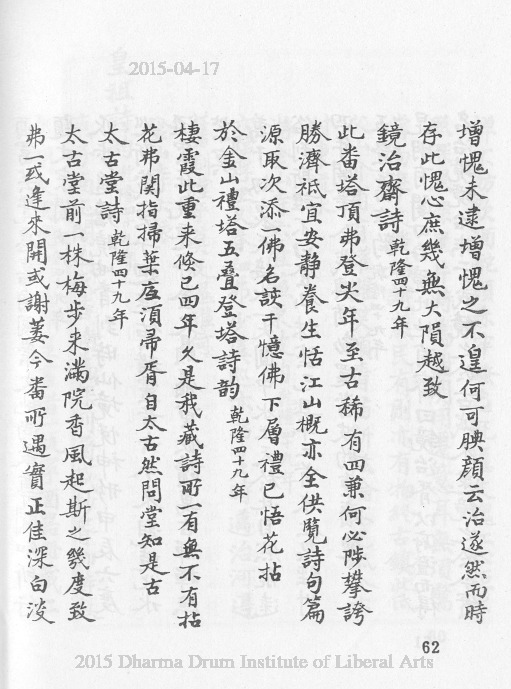 2015-04-17
增愧未逮增愧之不遑何可腆顔云治遂然而時
存此愧心庶幾無大隕越致
鏡治齋詩 乾隆四十九年
此番塔頂弗登尖年至古稀有四兼何必陟攀誇
勝濟祇宜安静養生恬江山概亦全供覽詩句篇
源取次添一佛名談千憶佛下層禮已悟花拈
於金山禮塔五叠登塔詩韵 乾隆四十九年
棲霞此重来倐已四年久是我藏詩所一有無不有拈
花弗関指掃葉庢湏帚胥自太古然問堂知是古
太古堂詩 乾隆四十九年
太古堂前一株梅步来滿院香風起斯之幾度致
弗一或逢來開或謝萎今畨所遇實正佳深白淡
62
2015 Dharma Drum Institute of Liberal Arts